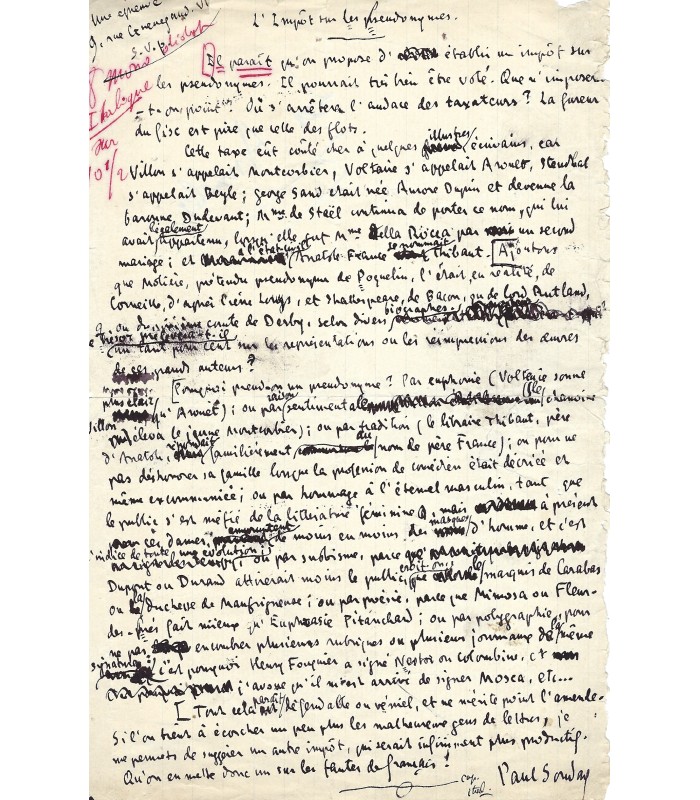 Une épreuve
9, rue Guénégaud. VI
S.V.P.
L'Impôt sur les pseudonymes.
Il paraît qu'on propose d'établir un impôt sur
les pseudonymes. Il pourrait très bien être voté. Que n'impose-
t-on point? Où s'arrêtera l'audace des taxateurs? La fureur
du fisc est pire que celle des flots.
8
Italique
sur
10 1/2
Cette taxe eût coûté cher à quelques illustres écrivains, car
Villon s'appelait Montcorbier, Voltaire s'appelait Arouet, Stendhal
s'appelait Beyle; George Sand était née Aurore Dupin et devenue la
baronne Dudevant; Mme de Staël continua de porter ce nom, qui lui
avait légalement appartenu, lorsqu'elle fut Mme della Rocca par un second
mariage; et à l'état-civil Anatole France se nommait Thibaut. Ajoutons
que Molière, prétendu pseudonyme de Poquelin, l'était, en réalité, de
Corneille, d'après Pierre Louÿs, et Shakespeare, de Bacon, ou de Lord Rutland,
ou du sixième comte de Derby, selon divers biographes.
Le Trésor prélèverait-il
un tant pour cent sur les représentations ou les réimpressions des œuvres
de ces grands auteurs?
Pourquoi prend-on un pseudonyme? Par euphonie (Voltaire sonne
plus clair qu'Arouet); ou par raison sentimentale (le chanoine
Villon éleva le jeune Montcorbier); ou par tradition (le libraire Thibaut, père
d'Anatole, répondait familièrement au nom de père France); ou pour ne
pas déshonorer sa famille lorsque la profession de comédien était décriée et
même excommuniée; ou par hommage à l'éternel masculin, tant que
le public s'est méfié de la littérature féminine, mais à présent
ces dames empruntent de moins en moins des masques d'homme, et c'est
l'indice de toute une évolution; ou par snobisme, parce que
Dupont ou Durand attirerait moins le public, croit-on, que le marquis de Carabas
ou la duchesse de Maufrigneuse; ou par poésie, parce que Mimosa ou Fleur-
des-Prés fait mieux qu'Euphrasie Pitanchard; ou par polygraphie, pour
ne pas encombrer plusieurs rubriques ou plusieurs journaux de la même
signature; c'est pourquoi Henry Fouquier a signé Nestor ou Colombine, et
j'avoue qu'il m'est arrivé de signer Mosca, etc...
Tout cela paraît défendable ou véniel, et ne mérite point l'amende.
Si l'on tient à écorcher un peu plus les malheureux gens de lettres, je
me permets de suggérer un autre impôt, qui serait infiniment plus productif.
Qu'on en mette donc un sur les fautes de français!
cap.
ital.
Paul Souday